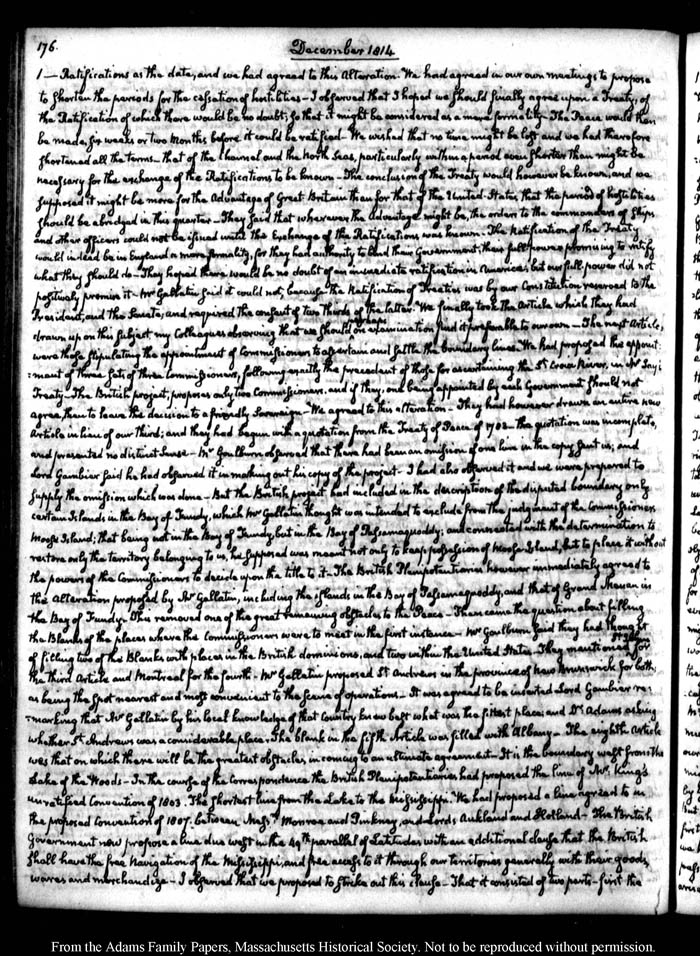 176.
December 1814
1 — Ratifications as the date, and we had agreed to this Alteration. We had agreed in our own meetings to propose
to shorten the periods for the cessation of hostilities — I observed that I hoped we should finally agree upon a Treaty, of
the Ratification of which there would be no doubt; so that it might be considered as a mere formality. The Peace would then
be made, six weeks or two Months before it could be ratified. We wished that no time might be lost and we had therefore
shortened all the terms — that of the Channel and the North Seas, particularly within a period even shorter than might be
necessary for the exchange of the Ratifications to be known — The conclusion of the Treaty would however be known, and we
supposed it might be more for the Advantage of Great Britain than for that of the United States, that the period of hostilities
should be abridged in this quarter — They said that wherever the advantage might be, the orders to the commanders of Ships
and other officers could not be issued until the Exchange of the Ratifications was known — The Ratification of the Treaty
would indeed be in England a mere formality, for they had authority to bind their Government; their full power promising to ratify
what they should do — They hoped there would be no doubt of an immediate ratification in America; but our full power did not
positively promise it — Mr Gallatin said it could not, because the Ratification of Treaties was by our Constitution reserved to the
President, and the Senate, and required the consent of two thirds of the latter. We finally took the Article which they had
drawn up on this subject, my Colleagues observing that we should on examination find it preferable to our own — The next Articles,
were those stipulating the appointment of Commissioners to ascertain and settle the boundary lines. We had proposed the appoint-
:ment of three sets of three Commissioners, following exactly the precedent of those for ascertaining the St Croix River, in Mr Jay's
Treaty — The British project, proposes only two Commissioners, and if they, one being appointed by each Government should not
agree, then to leave the decision to a friendly Sovereign — We agreed to this alteration — They had however drawn an entire new
Article in lieu of our third; and they had begun with a quotation from the Treaty of Peace of 1783 — the quotation was incomplete,
and presented no distinct sense — Mr Goulburn observed that there had been an omission of one line in the copy sent us; and
Lord Gambier said he had observed it in making out his copy of the project — I had also observed it and we were prepared to
supply the omission which was done — But the British project had included in the description of the disputed boundary only
certain Islands in the Bay of Fundy, which Mr Gallatin thought was intended to exclude from the judgment of the Commissioners
Moose Island; that being not in the Bay of Fundy, but in the Bay of Passamaquoddy; and connected with the determination to
restore only the territory belonging to us, he supposed was meant not only to keep possession of Moose Island, but to place it without
the powers of the Commissioners to decide upon the title to it — The British Plenipotentiaries however immediately agreed to
the Alteration proposed by Mr Gallatin, including the islands in the Bay of Passamaquoddy, and that of Grand Menan in
the Bay of Fundy. This removed one of the great remaining obstacles to the Peace — Then came the question about filling
the Blanks of the places where the Commissioners were to meet in the first instance — Mr Goulburn said they had thought
of filling two of the Blanks with places in the British dominions, and two within the United States — They mentioned St John for
the third Article and Montreal for the fourth — Mr Gallatin proposed St Andrews in the province of New Brunswick for both;
as being the spot nearest and most convenient to the scene of operations — It was agreed to be inserted Lord Gambier re-
:marking that Mr Gallatin by his local knowledge of that Country knew best what was the fittest place; and Dr Adams asking
whether St Andrews was a considerable place. The blank in the fifth Article was filled with Albany — The eighth Article
was that on which there will be the greatest obstacles, in coming to an ultimate agreement — It is the boundary west from the
Lake of the Woods — In the course of the correspondence the British Plenipotentiaries had proposed the line of Mr King's
unratified Convention of 1803. The shortest line from the Lake to the Mississippi. We had proposed a line agreed to in
the proposed Convention of 1807. between Messrs Monroe and Pinkney, and Lords Auckland and Holland — The British
Government now propose a line due west in the 49th parallel of Latitude; with an additional clause that the British
shall have the free Navigation of the Mississippi, and free access to it through our territories generally with their goods,
wares and merchandize — I observed that we proposed to strike out this clause — That it consisted of two parts — first the
From the Adams Family Papers, Massachusetts Historical Society. Not to be reproduced without permission.